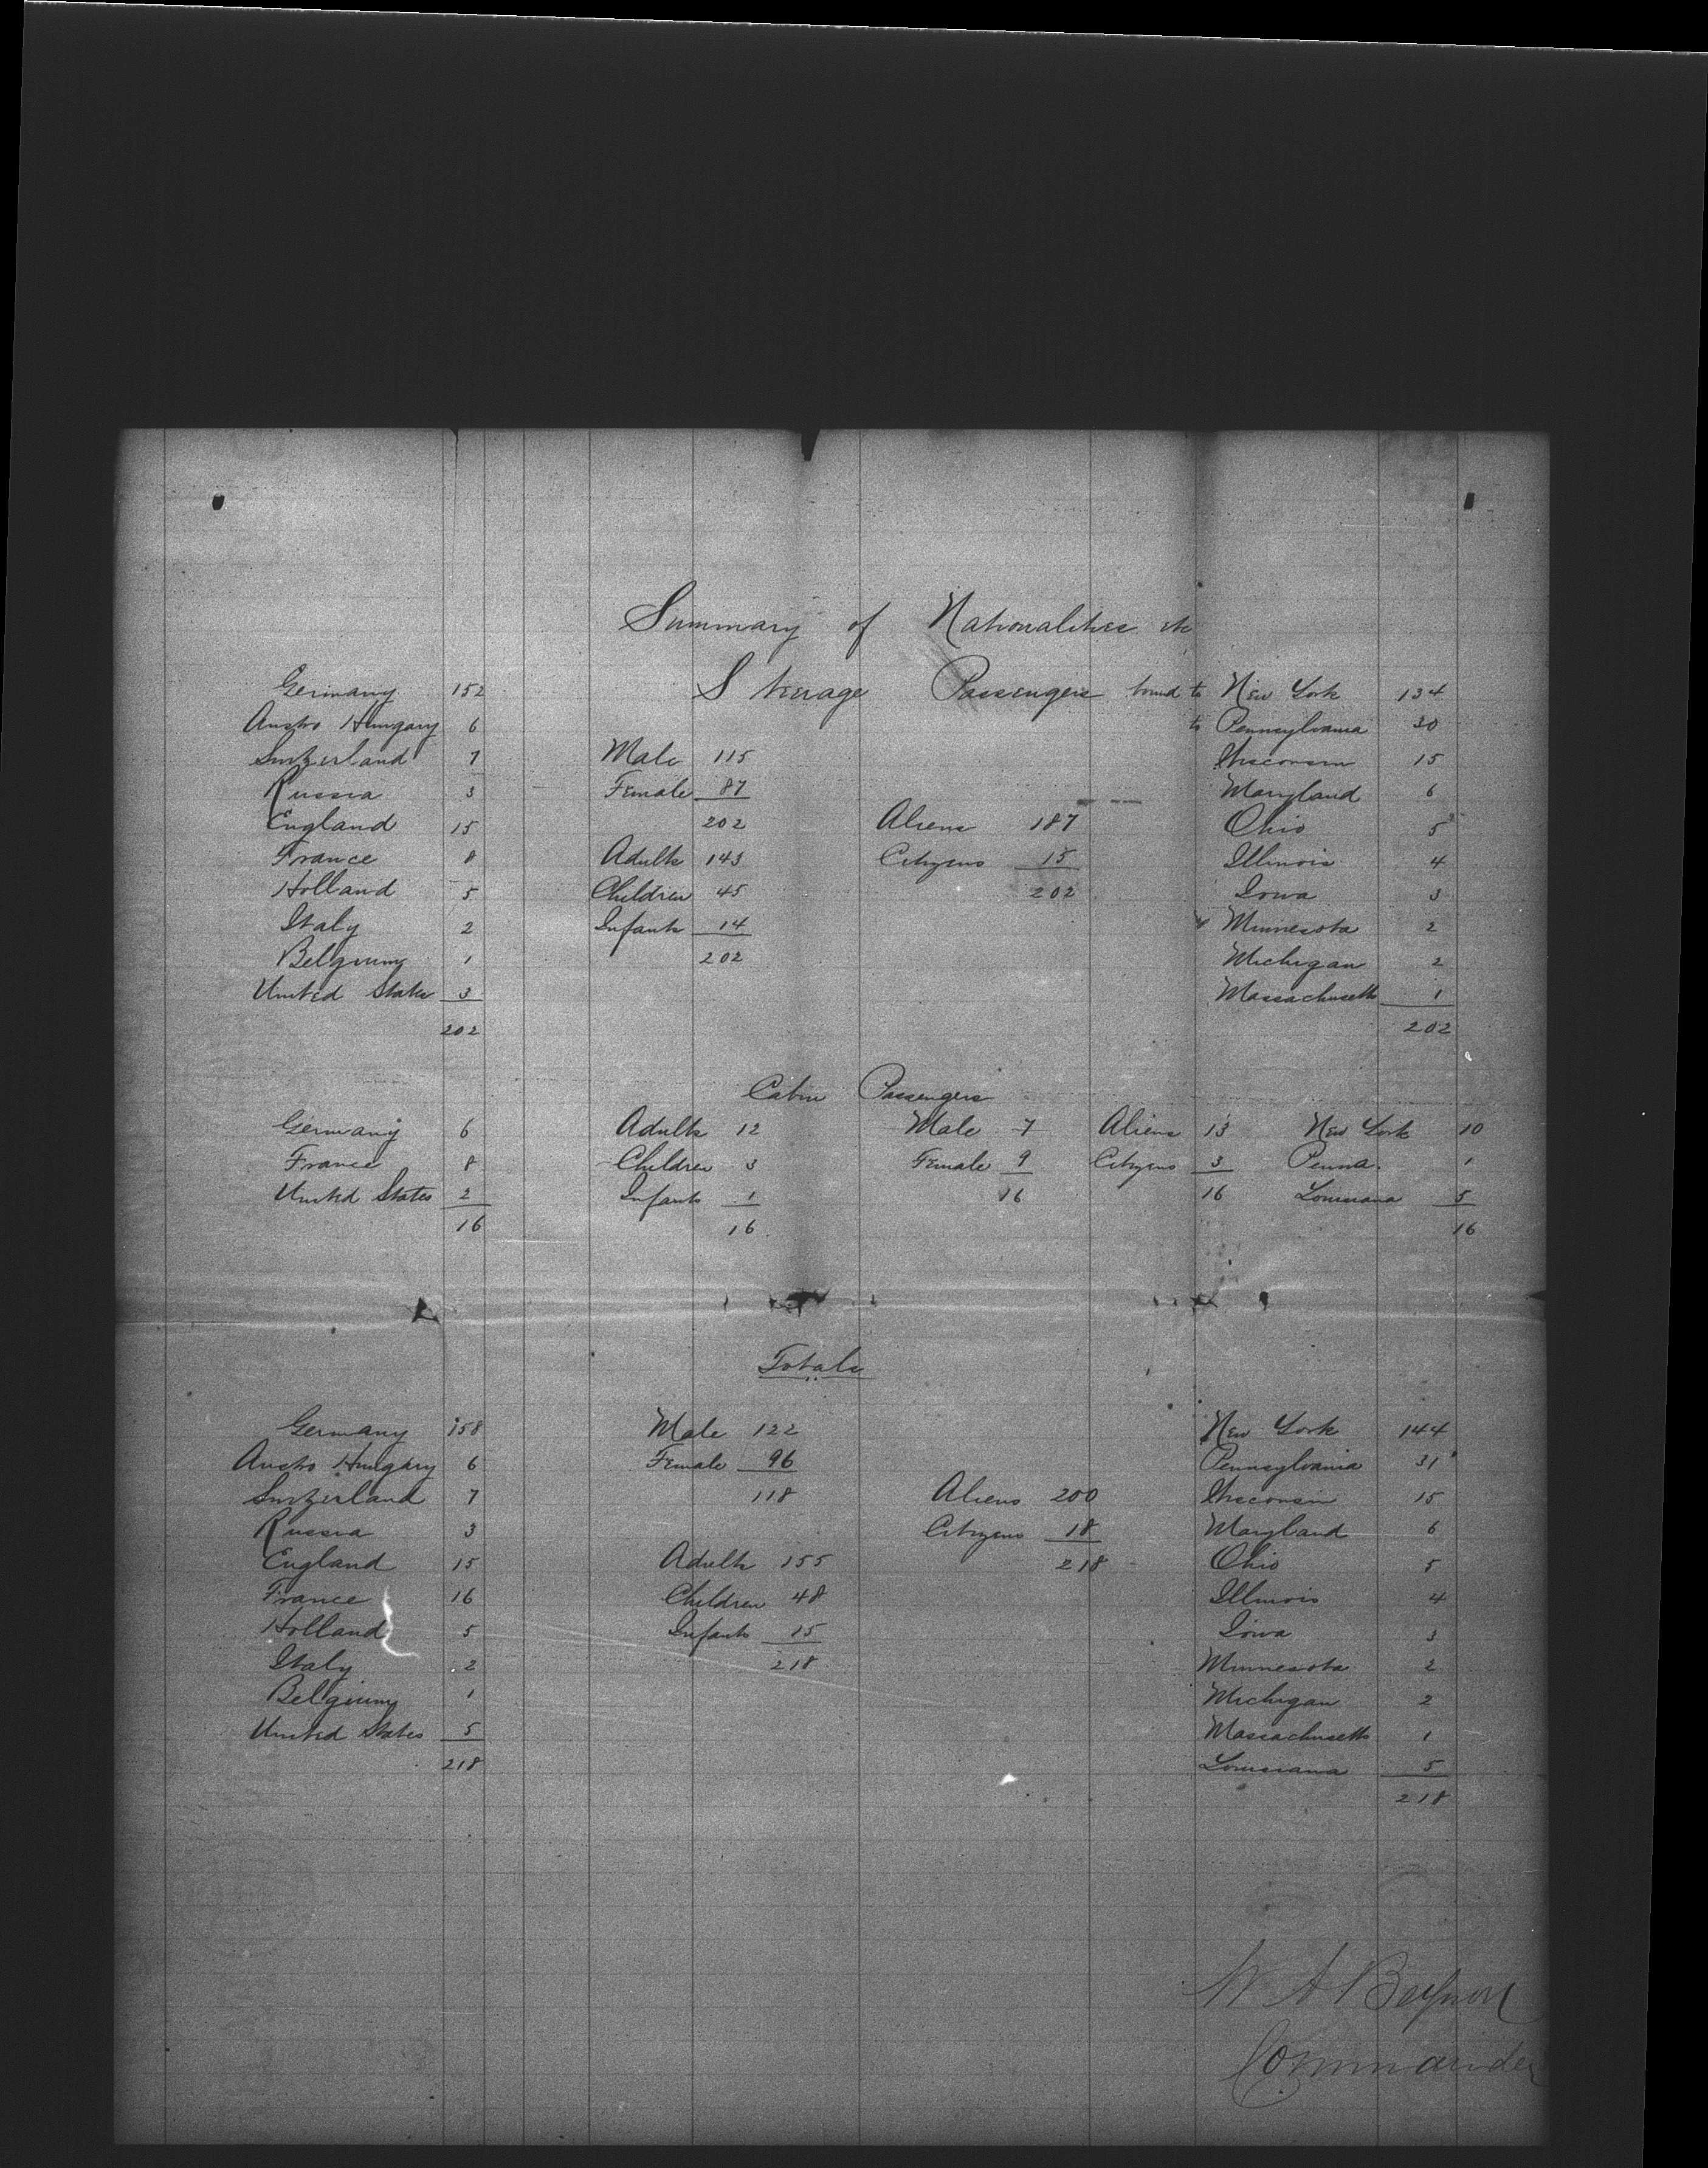 Summary of Nationalities etc
Germany 152 Steerage Passengers bound to New York 134
Austro Hungary 6 to Pennsylvania 30
Switzerland 7 Male 115 Wisconsin 15
Russia 3 Female 87 Maryland 6
England 15 202 Aliens 187 Ohio 5
France 8 Adults 143 Citizens 15 Illinois 4
Holland 5 Children 45 202 Iowa 3
Italy 2 Infants 14 Minnesota 2
Belgium 1 202 Michigan 2
United States 3 Massachusetts 1
202 202
Cabin Passengers
Germany 6 Adults 12 Male 7 Aliens 13 New York 10
France 8 Children 3 Female 9 Citizens 3 Penna. 1
United States 2 Infants 1 16 16 Louisiana 5
16 16 16
Totals
Germany 158 Male 122 New York 144
Austro Hungary 6 Female 96 Pennsylvania 31
Switzerland 7 118 Aliens 200 Wisconsin 15
Russia 3 Citizens 18 Maryland 6
England 15 Adults 155 218 Ohio 5
France 16 Children 48 Illinois 4
Holland 5 Infants 15 Iowa 3
Italy 2 218 Minnesota 2
Belgium 1 Michigan 2
United States 5 Massachusetts 1
218 Louisiana 5
218
W A Beynon
Commander